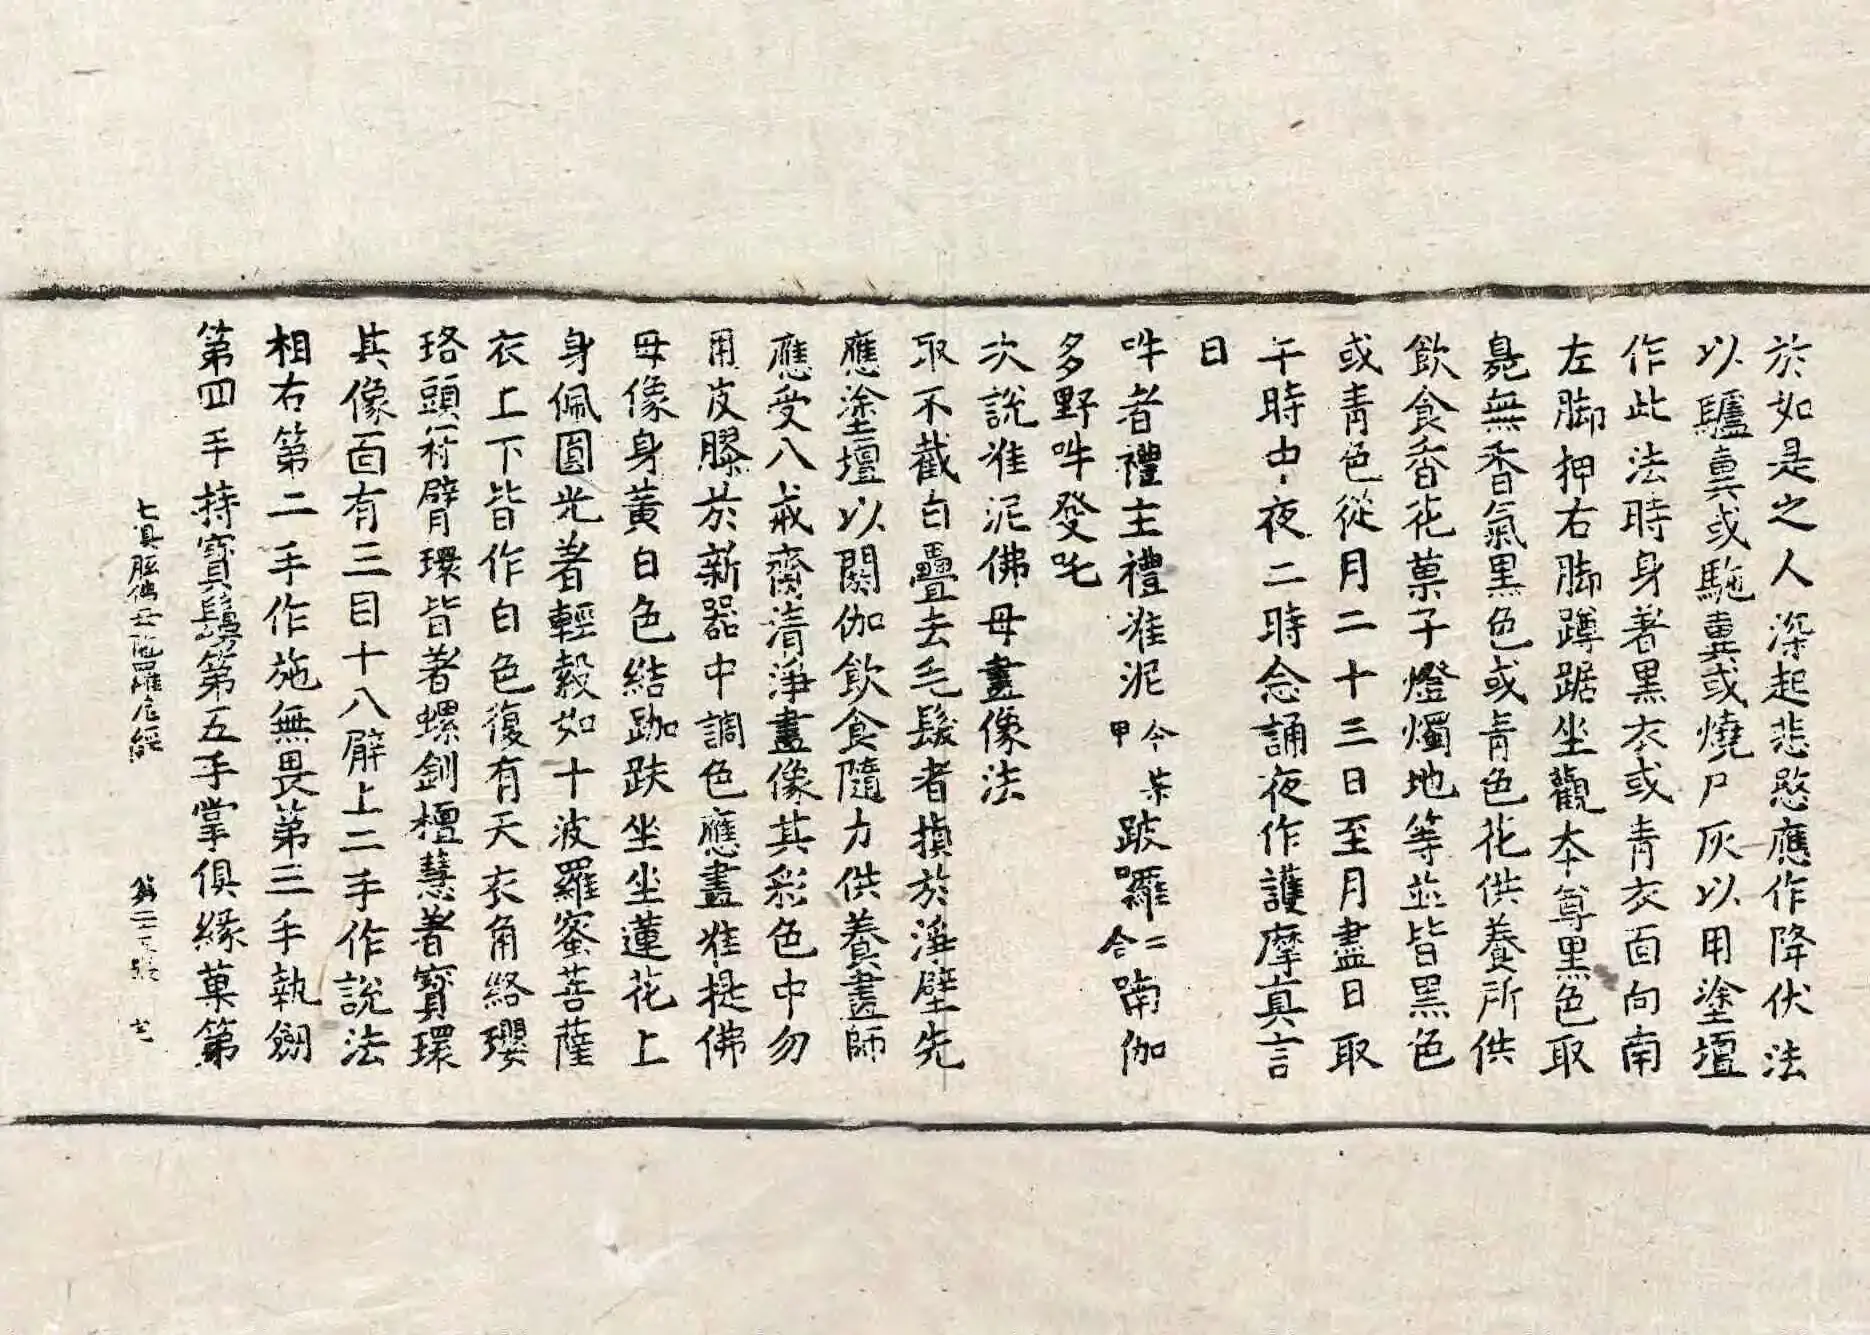 於如是之人深起悲愍應作降伏法
以驢糞或駞糞或燒尸灰以用塗壇
作此法時身著黑衣或青衣面向南
左脚押右脚蹲踞坐觀本尊黑色取
臰無香氣黑色或青色花供養所供
飲食香花菓子燈燭地等並皆黑色
或青色從月二十三日至月盡日取
午時中夜二時念誦夜作護摩真言
曰
吽者禮主禮准泥甲今某跛囉二合喃伽
多野吽發吒
次說准泥佛母畫像法
取不截白疊去毛髮者揁於淨壁先
應塗壇以閼伽飲食隨力供養畫師
應受八戒齋清淨畫像其彩色中勿
用皮膠於新器中調色應畫准提佛
母像身黃白色結跏趺坐坐蓮花上
身佩圓光著輕縠如十波羅蜜菩薩
衣上下皆作白色復有天衣角絡瓔
珞頭冠臂環皆著螺釧檀慧著寶環
其像面有三目十八臂上二手作說法
相右第二手作施無畏第三手執劒
第四手持寶鬘第五手掌俱緣菓第
七具胝佛母陀羅尼經